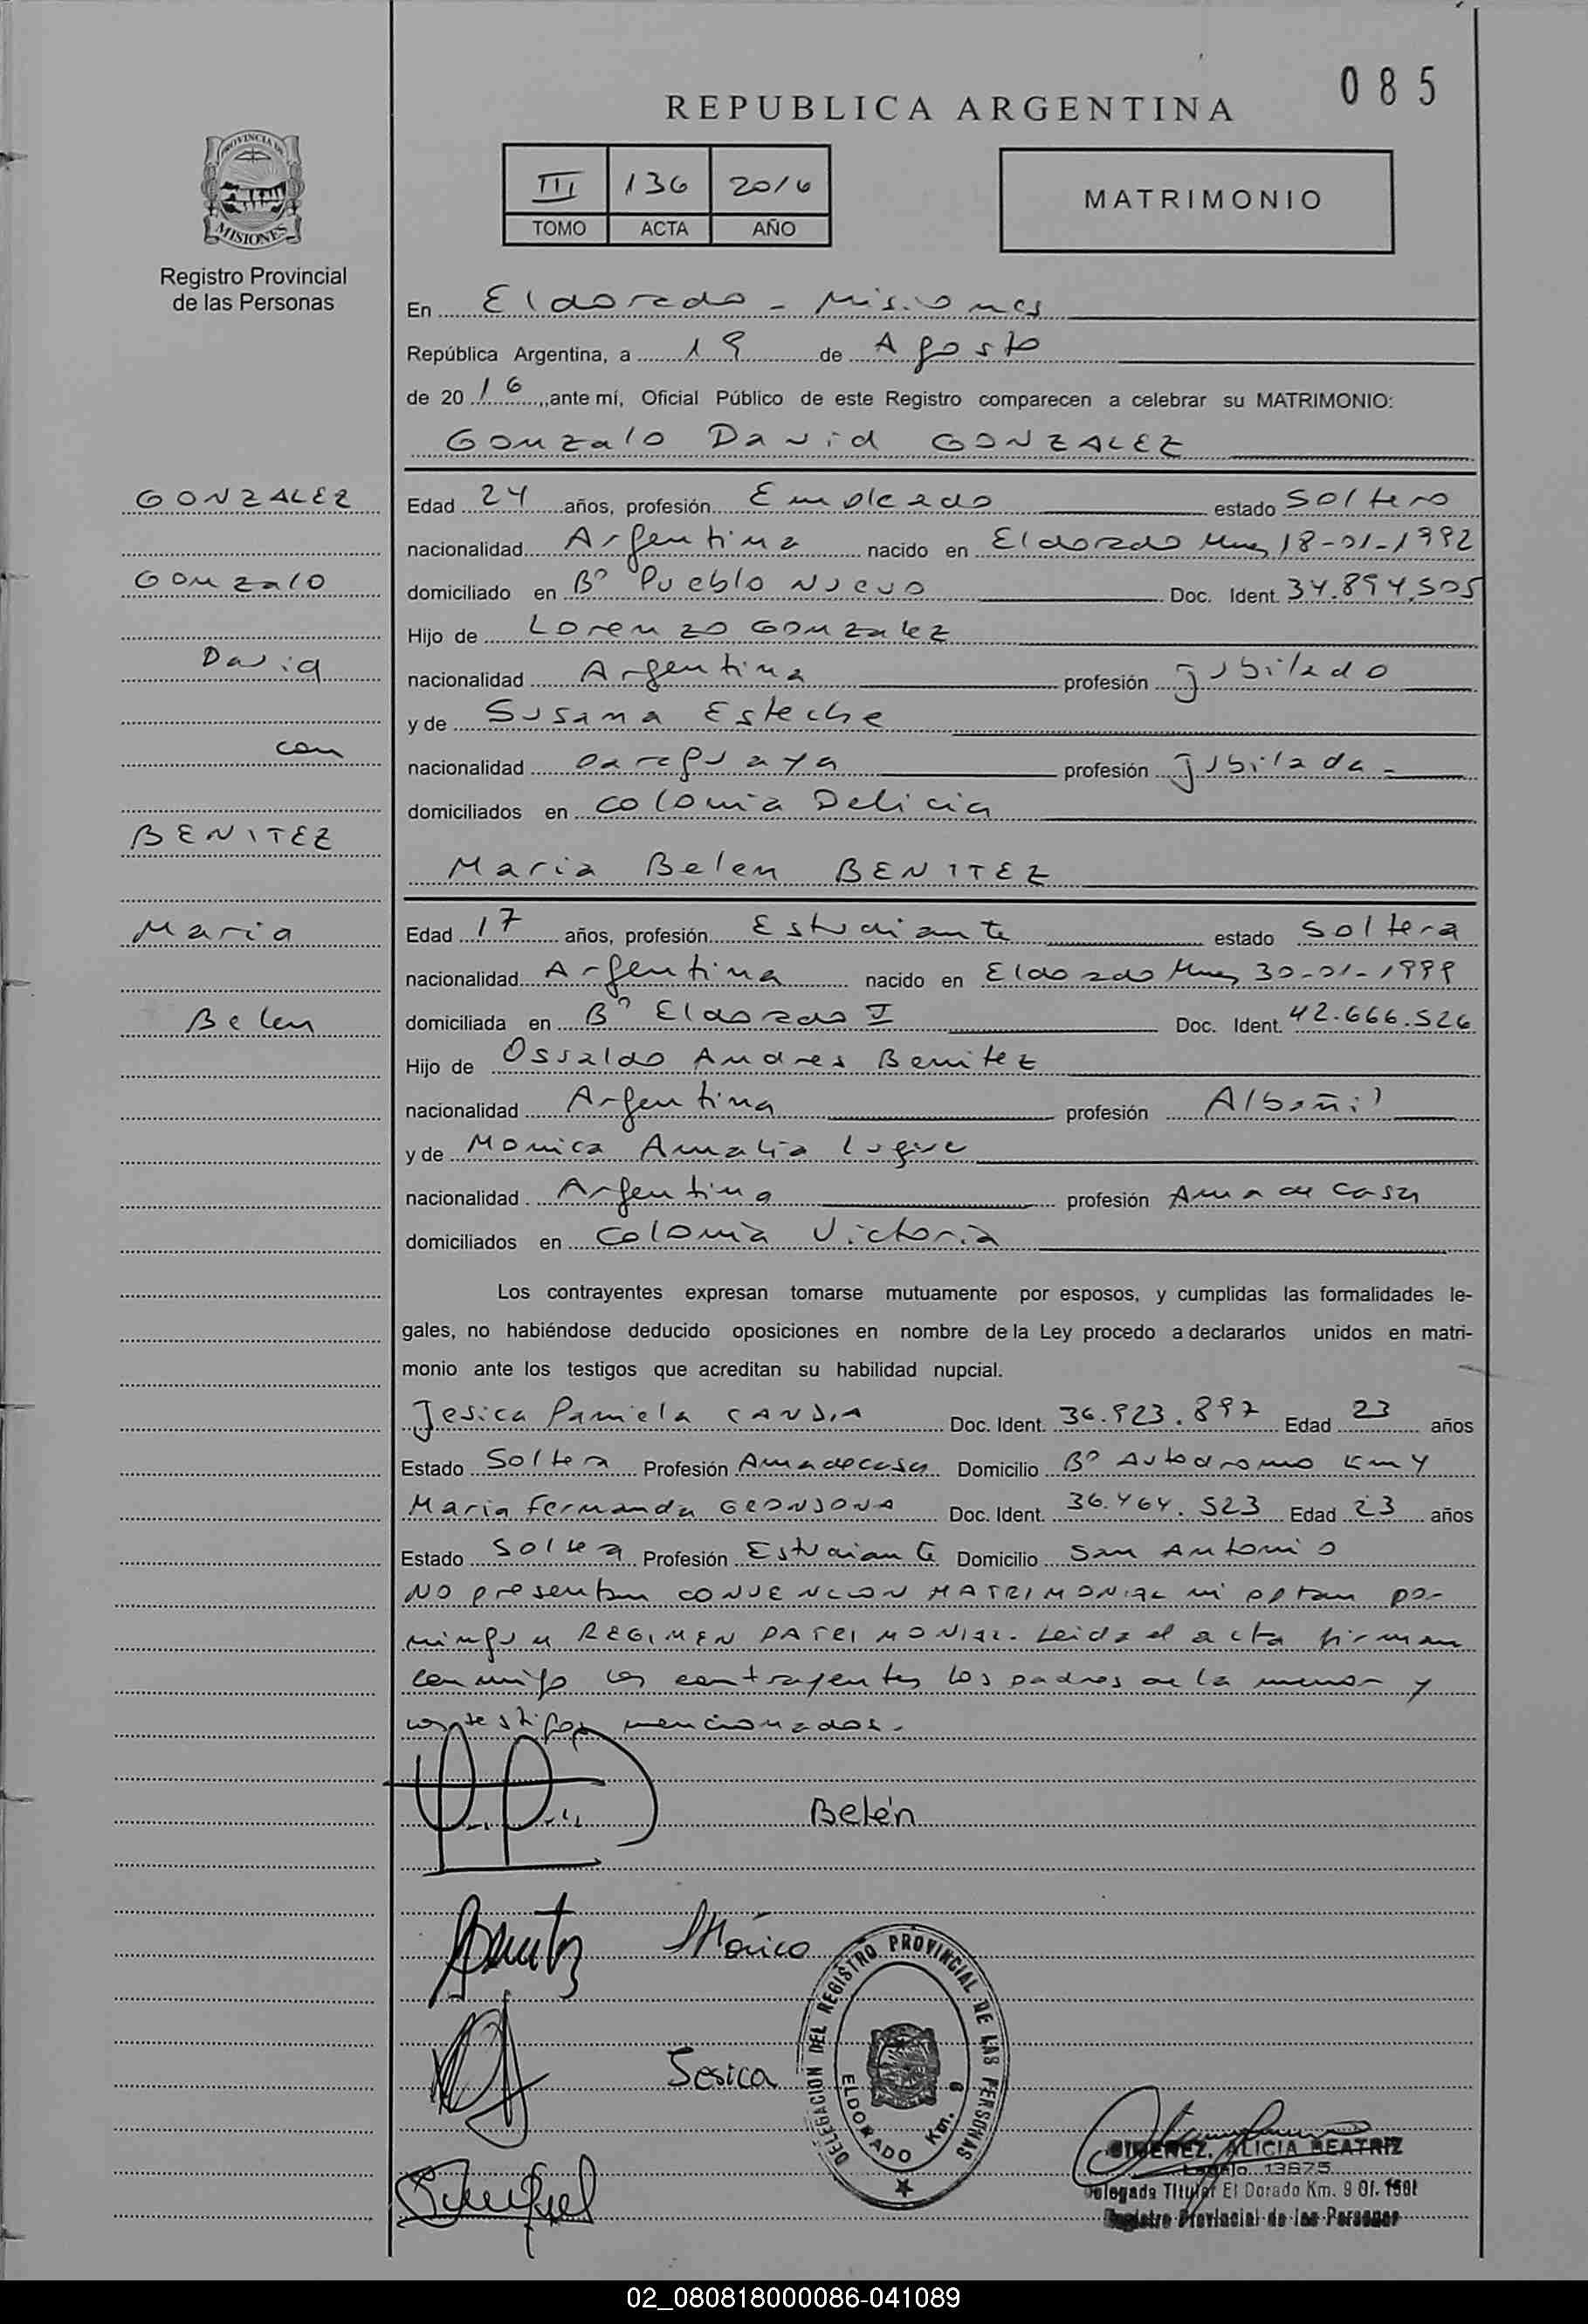 085
REPUBLICA ARGENTINA
PROVINCIA DE
MISIONES
III 136 2016
TOMO ACTA AÑO
MATRIMONIO
Registro Provincial
de las Personas
En Eldorado - Misiones
República Argentina, a 19 de Agosto
de 2016, ante mí, Oficial Público de este Registro comparecen a celebrar su MATRIMONIO:
Gonzalo David GONZALEZ
GONZALEZ
Gonzalo
David
con
BENITEZ
Maria
Belen
Edad 24 años, profesión Empleado estado Soltero
nacionalidad Argentina nacido en Eldorado Mnes 18-01-1992
domiciliado en Bº Pueblo Nuevo Doc. Ident. 34.894.505
Hijo de Lorenzo Gonzalez
nacionalidad Argentina profesión jubilado
y de Susana Esteche
nacionalidad paraguaya profesión jubilada-
domiciliados en colonia Delicia
Maria Belen BENITEZ
Edad 17 años, profesión Estudiante estado Soltera
nacionalidad Argentina nacido en Eldorado Mnes 30-01-1999
domiciliada en Bº Eldorado I Doc. Ident. 42.666.526
Hijo de Osvaldo Andres Benitez
nacionalidad Argentina profesión Albañil
y de Monica Amalia Lugue
nacionalidad Argentina profesión Ama de casa
domiciliados en Colonia Victoria
Los contrayentes expresan tomarse mutuamente por esposos, y cumplidas las formalidades le-
gales, no habiéndose deducido oposiciones en nombre de la Ley procedo a declararlos unidos en matri-
monio ante los testigos que acreditan su habilidad nupcial.
Jesica Pamela CANDIA Doc. Ident. 36.923.897 Edad 23 años
Estado Soltera Profesión Ama de casa Domicilio Bº Autodromo Km 4
Maria Fernanda Doc. Ident. 36.464.523 Edad 23 años
Estado Soltera Profesión Estudiante Domicilio San Antonio
No presentan CONVENCION MATRIMONIAL ni optan por
ningun REGIMEN PATRIMONIAL. Leida el acta firman
conmigo los contrayentes los padres de la menor y
los testigos mencionados.
Belén
Benitez Mónica
Jesica
DELEGACION DEL REGISTRO PROVINCIAL DE LAS PERSONAS
ELDORADO Km. 9
GIMENEZ, ALICIA BEATRIZ
Legajo 13875
Delegada Titular El Dorado Km. 9 Of. 1501
Registro Provincial de las Personas
02_080818000086-041089